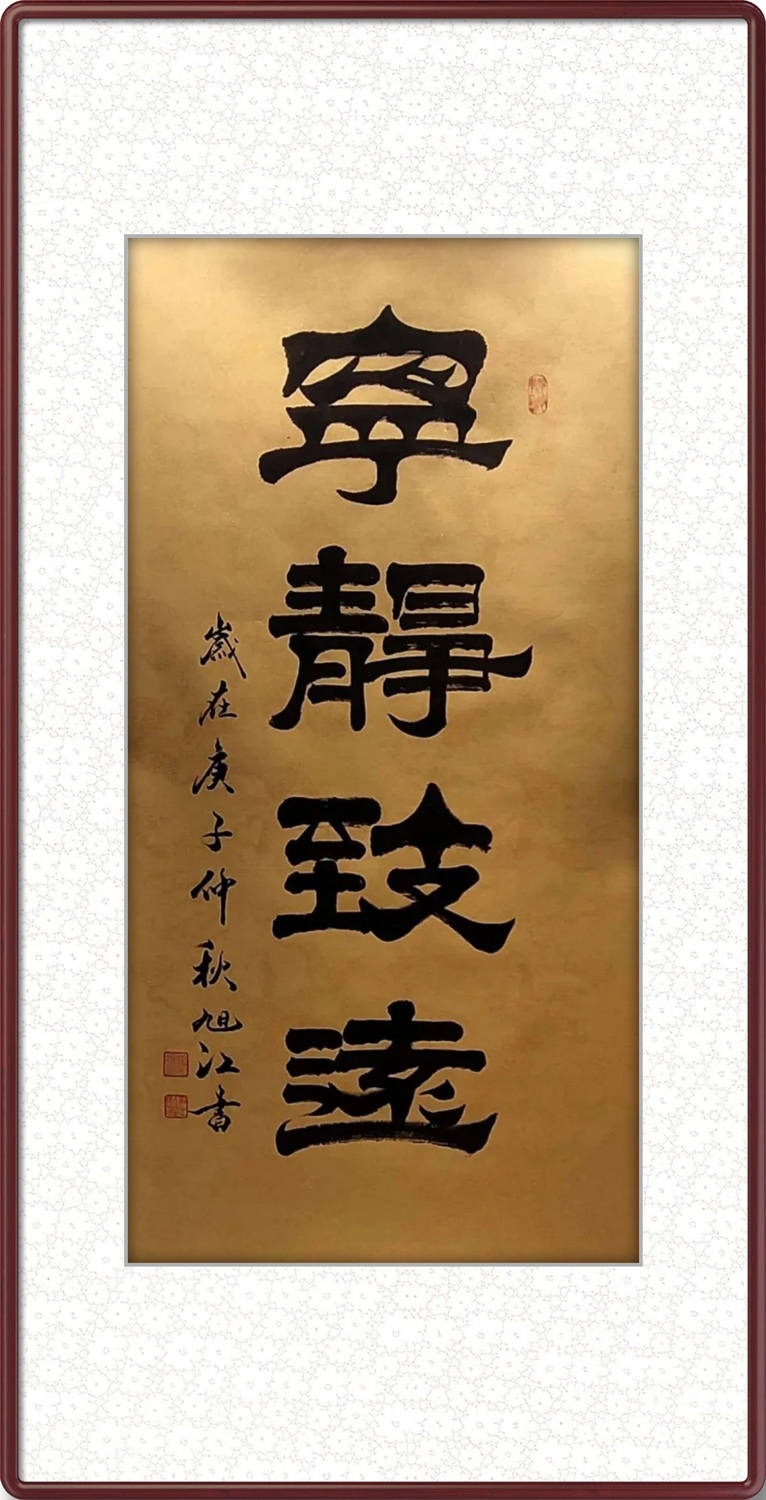 寧靜致遠
歲在庚子仲秋旭江書